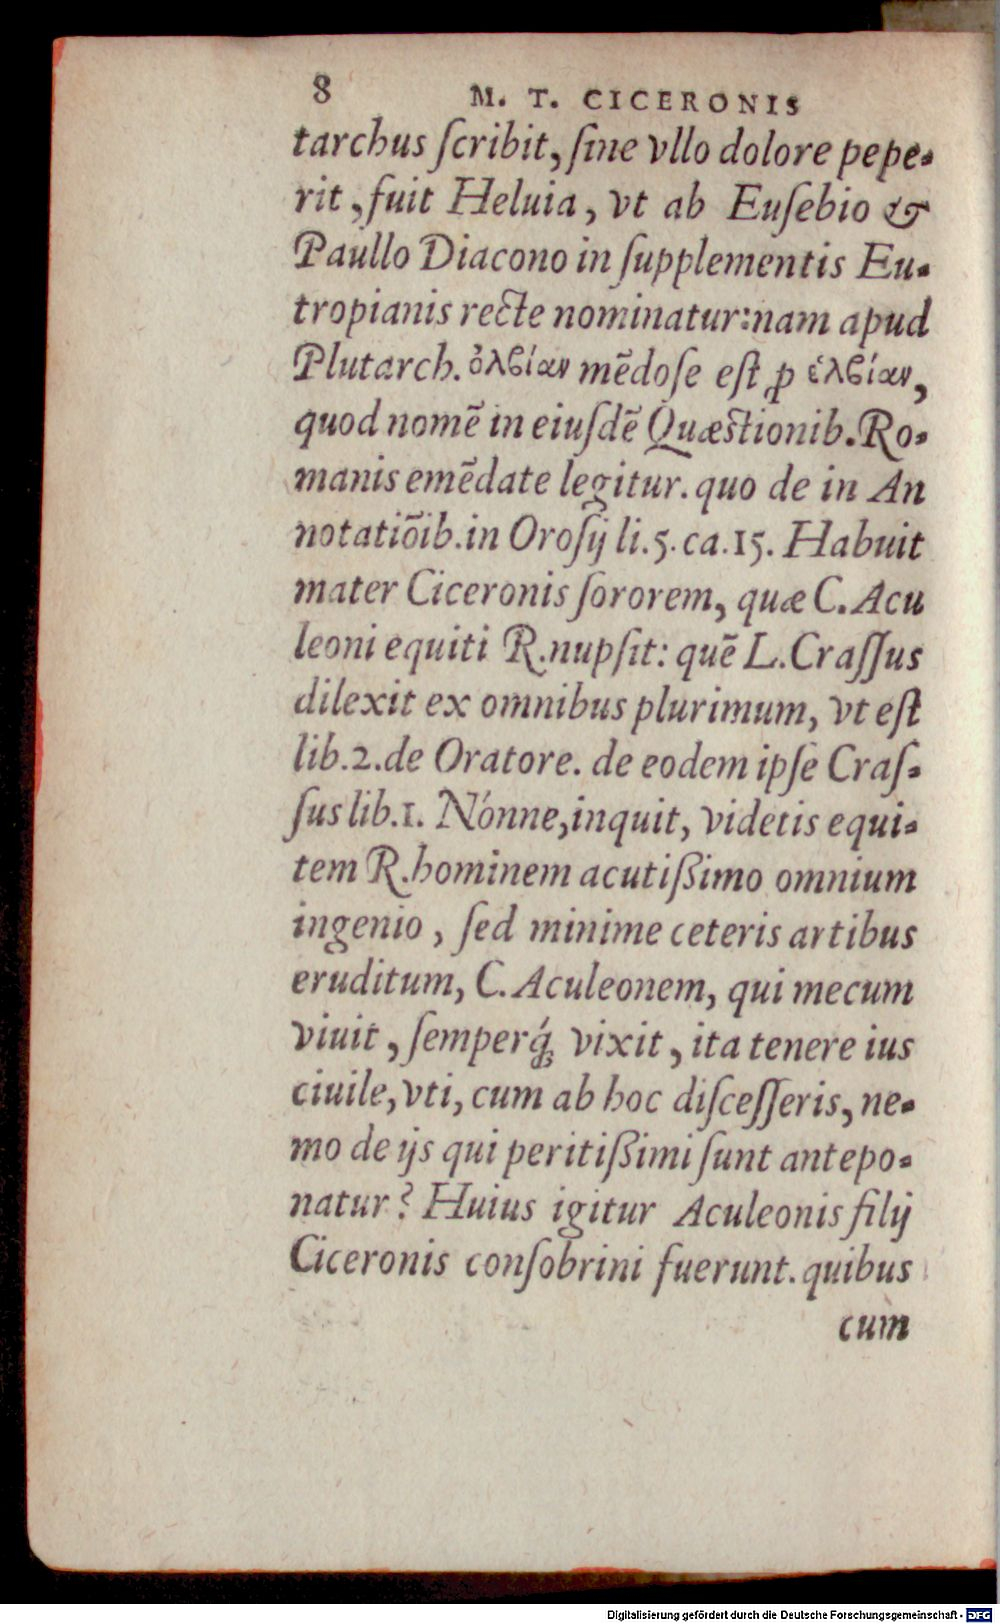 8 M. T. CICERONIS
tarchus ſcribit, ſine vllo dolore pepe-
rit, fuit Heluia, vt ab Euſebio &
Paullo Diacono in ſupplementis Eu-
tropianis recte nominatur: nam apud
Plutarch. ὀλβίαν mēdoſe eſt ꝓ ἑλβίαν,
quod nomē in eiuſdē Quæstionib. Ro-
manis emēdate legitur. quo de in An
notatiōib. in Oroſij li. 5. ca. 15. Habuit
mater Ciceronis ſororem, quæ C. Acu
leoni equiti R. nupſit: quē L. Craſſus
dilexit ex omnibus plurimum, vt eſt
lib. 2. de Oratore. de eodem ipſe Craſ-
ſus lib. 1. Nónne, inquit, videtis equi-
tem R. hominem acutißimo omnium
ingenio, ſed minime ceteris artibus
eruditum, C. Aculeonem, qui mecum
viuit, ſemperq́; vixit, ita tenere ius
ciuile, vti, cum ab hoc diſceſſeris, ne-
mo de ijs qui peritißimi ſunt antepo-
natur? Huius igitur Aculeonis filij
Ciceronis conſobrini fuerunt. quibus
cum
Digitalisierung gefördert durch die Deutsche Forschungsgemeinschaft - DFG